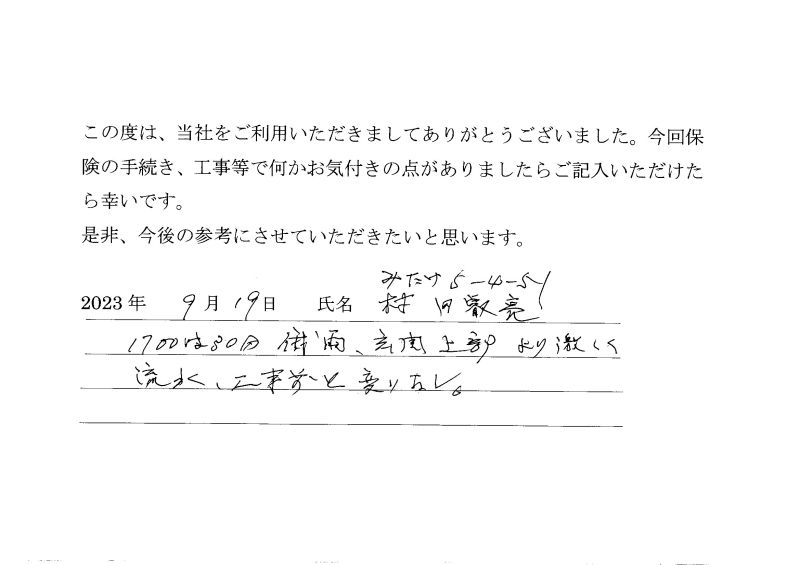 この度は、当社をご利用いただきましてありがとうございました。今回保
険の手続き、工事等で何かお気付きの点がありましたらご記入いただけた
ら幸いです。
是非、今後の参考にさせていただきたいと思います。
みたけ5-4-51
2023年 9月19日 氏名 村田叡亮
1700 30分 雨、玄関上部より激しく
流水、工事前と変りなし。